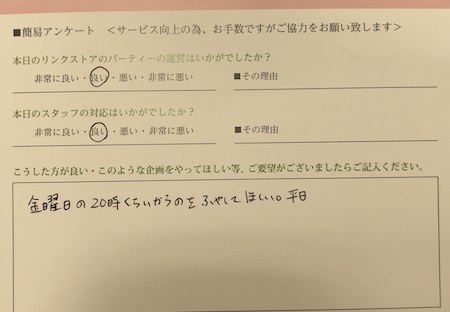 ■簡易アンケート ＜サービス向上の為、お手数ですがご協力をお願い致します＞
本日のリンクストアのパーティーの運営はいかがでしたか？
非常に良い・良い・悪い・非常に悪い ■その理由
本日のスタッフの対応はいかがでしたか？
非常に良い・良い・悪い・非常に悪い ■その理由
こうした方が良い・このような企画をやってほしい等、ご要望がございましたらご記入ください。
金曜日の20時くらいからのをふやしてほしい。平日